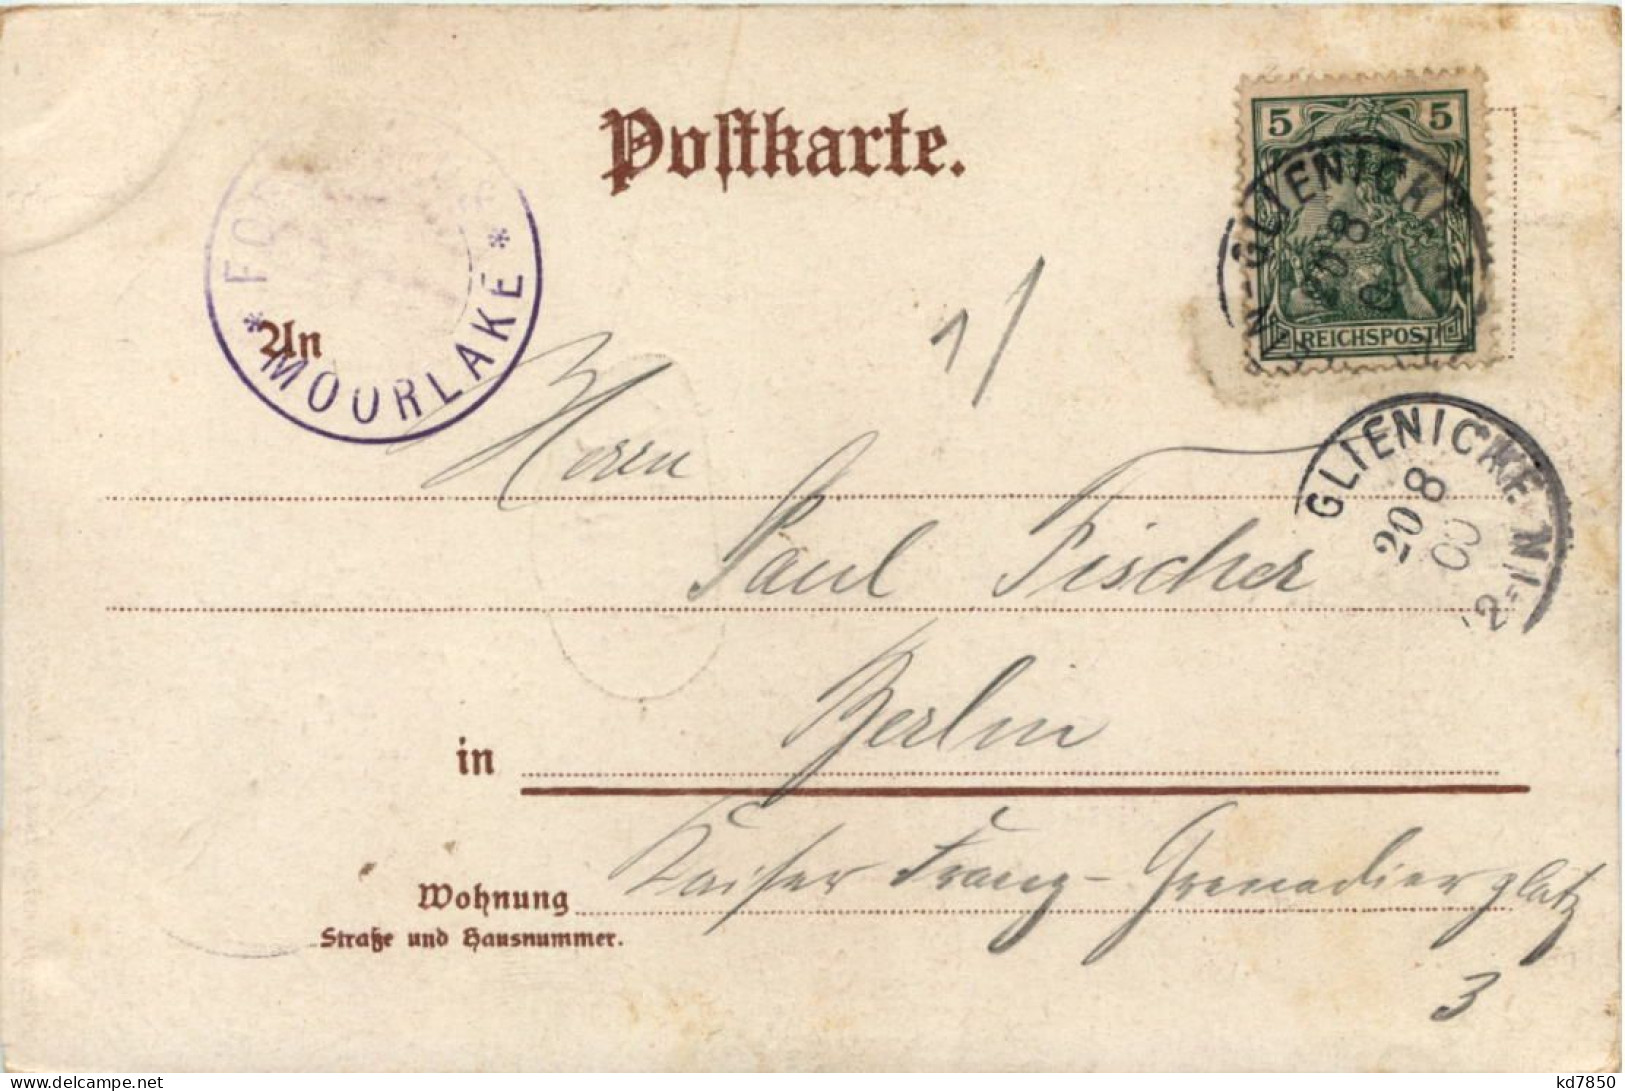 Postkarte.
5 5
GLIENICKE N
20 8
REICHSPOST
* MOURLAKE *
An
1/
Herrn
GLIENICKE N
20 8
00
Paul Fischer
in Berlin
Wohnung Kaiser Franz-Grenadierplatz
Straße und Hausnummer.
3
www.delcampe.net
kd7850